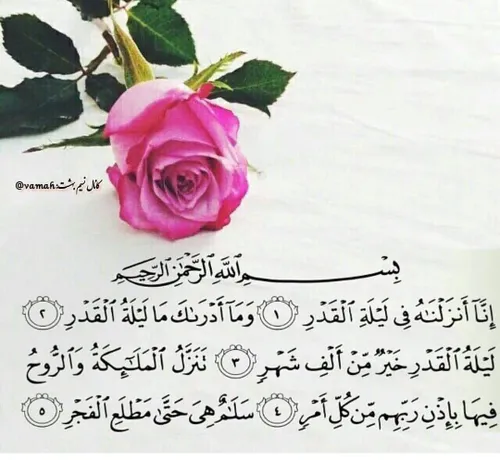 کانال نسیم بهشت:@vamah
بِسْمِ ٱللَّهِ ٱلرَّحْمَٰنِ ٱلرَّحِيمِ
إِنَّآ أَنزَلْنَٰهُ فِى لَيْلَةِ ٱلْقَدْرِ ١ وَمَآ أَدْرَىٰكَ مَا لَيْلَةُ ٱلْقَدْرِ ٢
لَيْلَةُ ٱلْقَدْرِ خَيْرٌ مِّنْ أَلْفِ شَهْرٍ ٣ تَنَزَّلُ ٱلْمَلَٰٓئِكَةُ وَٱلرُّوحُ
فِيهَا بِإِذْنِ رَبِّهِم مِّن كُلِّ أَمْرٍ ٤ سَلَٰمٌ هِىَ حَتَّىٰ مَطْلَعِ ٱلْفَجْرِ ٥